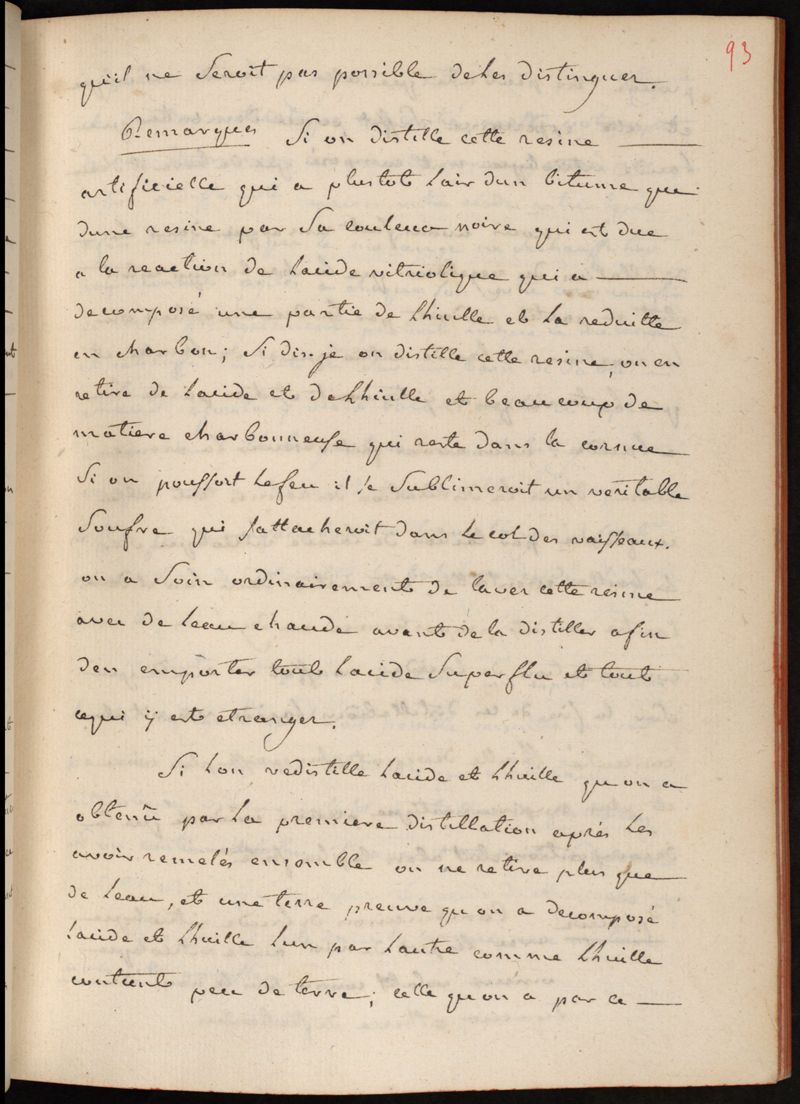 93
qu'il ne Seroit pas possible deles distinguer.
Remarques Si on distille cette resine
artificielle qui a plustot Lair dun bitume que
dune resine par Sa couleur noire qui est due
a la reaction de Lacide vitriolique qui a
decomposé une partie de Lhuille et La reduitte
en charbon; Si dis-je on distille cette resine, on en
retire de Lacide et deLhuille et beaucoup de
matiere charbonneuse qui reste dans la cornue
Si on poussoit Lefeu il se Sublimeroit un veritable
Soufre qui sattacheroit dans Le col des vaisseaux.
on a Soin ordinairement de laver cette resine
avec de Leau chaude avant de la distiller afin
den emporter tout Lacide Superflu et tout
cequi ÿ est etranger.
Si Lon redistille Lacide et Lhuille qu on a
obtenû par La premiere distillation après Les
avoir remelés ensemble on ne retire plus que
de Leau, et une terre preuve qu on a decomposé
Lacide et Lhuille Lun par Lautre comme Lhuille
contient peu de terre; celle qu on a par ce